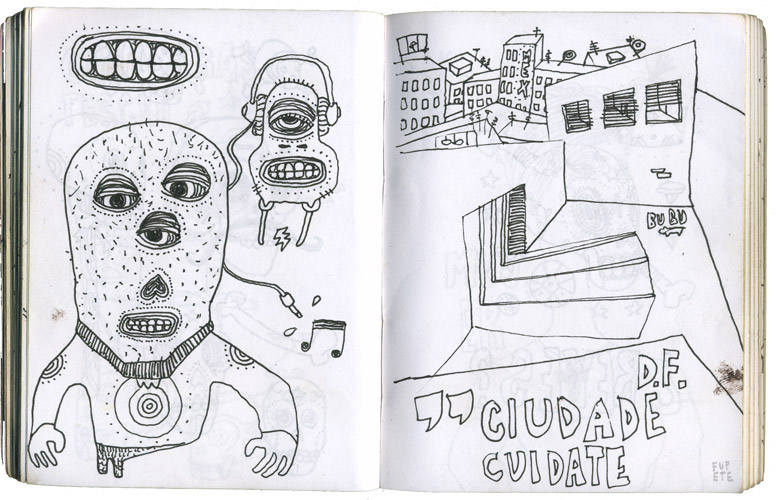 MEX
BUBU
D.F.
”CIUDADE
CUIDATE
FUP
ETE